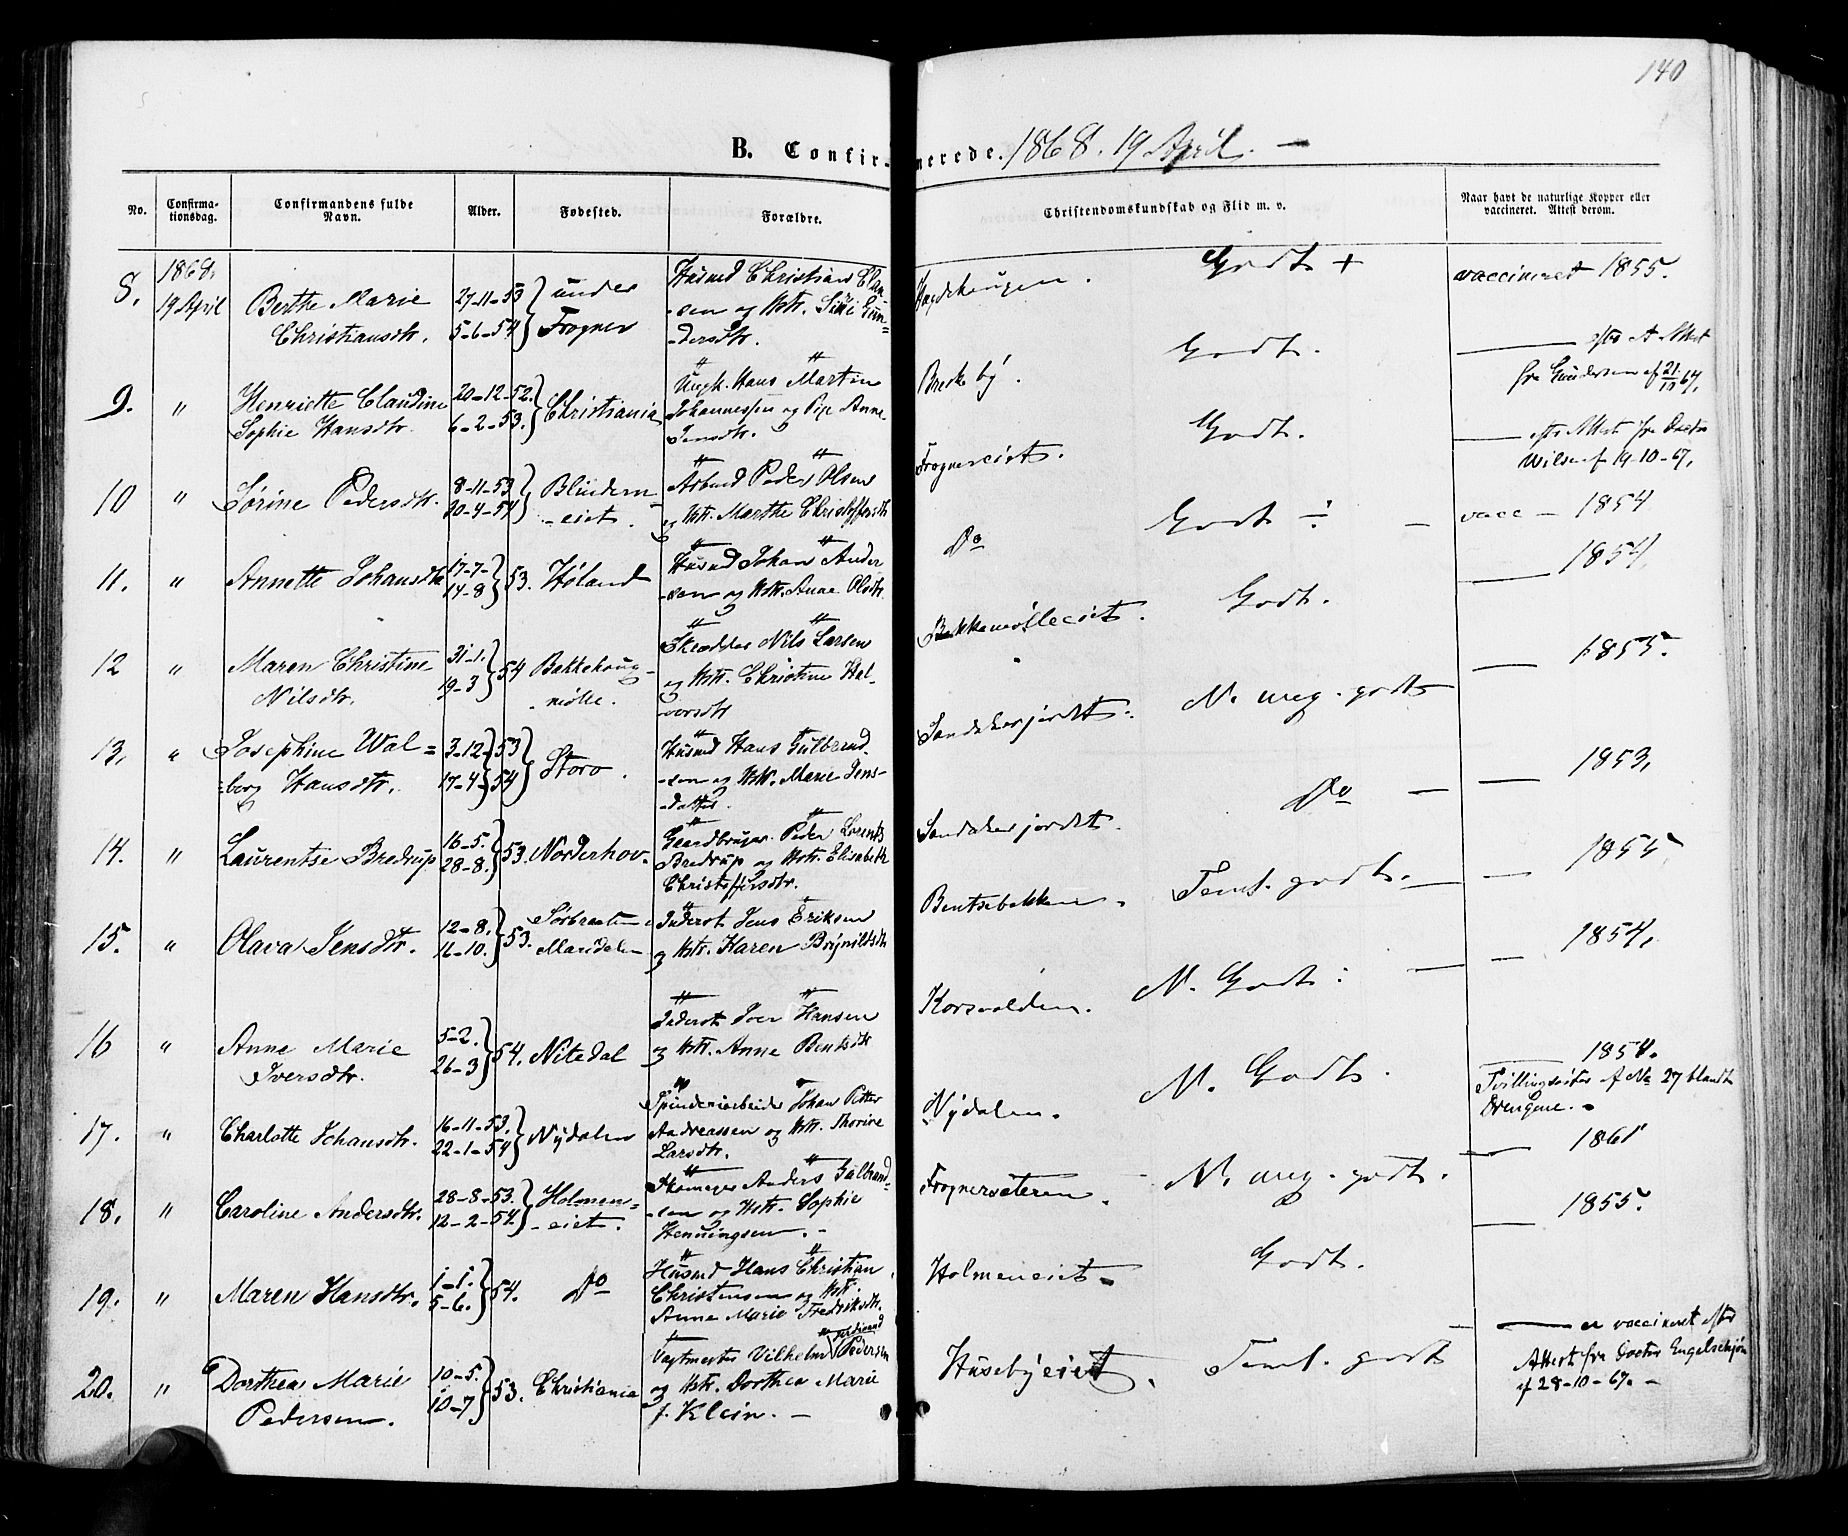 140
B. Confirmerede. 1868. 19 April. —
No.
Confirmationsdag.
Confirmandens fulde Navn.
Alder.
Fødested.
Forældre.
Christendomskundskab og Flid m. v.
Naar havt de naturlige Kopper eller vaccineret. Attest derom.
8.
1868.
19 April
Berthe Marie
Christiansdtr.
27-11-53
5-6-54
under
Frogner
Husmd Christian
-sen og Hstr.
-dersdtr.
Godt +
vaccineret 1855.
9.
"
Henriette Claudine
Sophie Hansdtr.
20-12-52.
6-2-53.
Christiania
Ungk. Hans Martin
Johannessen og Pige Anne
Jensdtr.
Breskeby.
Godt.
— efter Attest
fra Gundersen af 21/10 67.
10
"
Sørine Pedersdtr.
8-11-53
20-4-54
Blindern
-eiet.
Arbmd Peder Olsen
og Hstr. Marthe
Frognereiet.
Godt.
— efter Attest fra Doctor
Wilse af 19-10-67.
11.
"
Annette Johansdtr
17-7-
14-8
53.
Høland
Husmd Johan Ander
-sen og Hstr. Anne Olsdtr.
Do
Godt ÷ —
vacc — 1854
12
"
Maren Christine
Nilsdtr.
31-1.
19-3
54
Bakkehaug-
-mølle.
Skrædder Nils Larsen
og Hstr. Christine Hal-
-vorsdtr
Bakkemølleeiet.
Godt.
— 1854.
13.
"
Josephine Wal=
=borg Hansdtr.
3-12-53
17-4-54
Storo.
Husmd Hans Gulbrand
-sen og Hstr. Marie Jens-
-datter.
Sandakerjordet.
N. meg. godt
— 1855.
14.
"
Laurentse Bredrup
16-5.
28-8.
53.
Norderhov.
Gaardbruger Peder Lorents
Bredrup og Hstr. Elisabeth
Christoffersdtr.
Sandakerjordet.
Do —
— 1853.
15.
"
Olava Jensdtr.
12-8.
16-10.
53.
Sørbraaten
Maridalen
Inderst Jens Eriksen
og Hstr. Karen Brynildsdtr
Bentsebakken.
Teml. godt. —
— 1855
16
"
Anne Marie
Iversdtr.
5-2.
26-3
54.
Nitedal
Inderst Iver Hansen
og Hstr. Anne Bentsdtr
Korsvolden.
N. Godt: —
— 1854.
17.
"
Charlotte Johansdtr.
16-11-53.
22-1-54
Nydalen
Spinderiarbeider Johan Petter
Andreassen og Hstr. Thorine
Larsdtr.
Nydalen.
N. Godt.
— 1854.
Tvillingsøster af No 27 blandt
Drengene. —
18.
"
Caroline Andersdtr.
28-8-53.
12-2-54.
Holmen-
-eiet.
Skomager Anders Gulbrand
-sen og Hstr. Sophie
Henningsen. —
Frognersæteren.
N. meg. godt.
— 1861
19.
"
Maren Hansdtr.
1-1.
5-6.
54.
Do
Husmd Hans Christian
Christensen og Hstr.
Anne Marie Fredriksdtr.
Holmeneiet.
Godt.
— 1855.
20.
"
Dorthea Marie
Pedersen.
10-5.
10-7
53.
Christiania
Vagtmester Vilhelm Ferdinand Pedersen
og Hstr. Dorthea Marie
f. Klein. —
Husebyeiet.
Teml. godt
— er vaccineret efter
Attest fra Doctor Engelschjøn
af 28-10-67. —